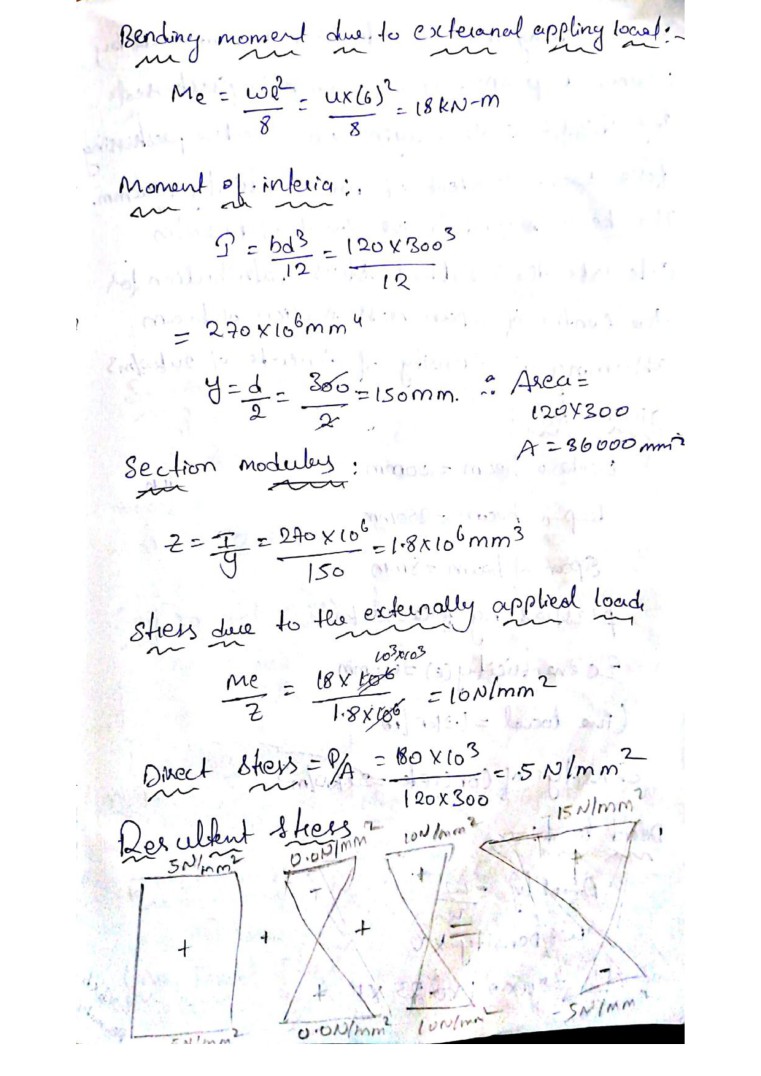 Bending moment due to exteranal appling load:-
Me = wl²/8 = 4x(6)²/8 = 18 kN-m
Moment of interia :.
I = bd³/12 = 120 x 300³/12
= 270 x 10⁶ mm⁴
y = d/2 = 300/2 = 150mm. ∴ Area =
120 x 300
A = 36000 mm²
Section modulus :
Z = I/y = 270 x 10⁶/150 = 1.8 x 10⁶ mm³
Stress due to the externally applied load,
10³x10³
Me/Z = 18 x 10⁶/1.8 x 10⁶ = 10 N/mm²
Direct Stress = P/A = 180 x 10³/120 x 300 = 5 N/mm²
Resultent stress
5N/mm² 0.0N/mm² 10N/mm² 15N/mm²
+ + - + + + = + -
+ -
5N/mm² 0.0N/mm² 10N/mm² -5N/mm²